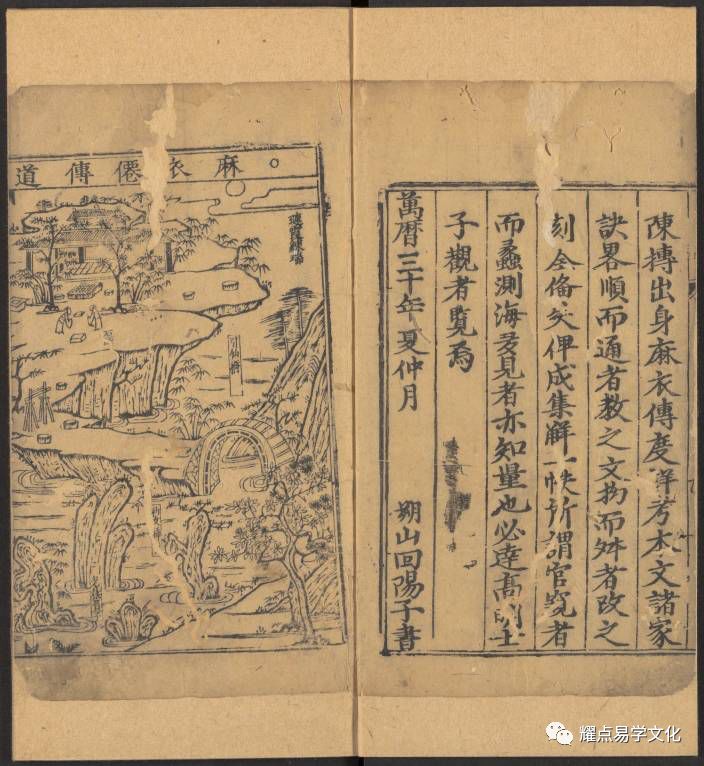 陳摶出身麻衣傳度詳考本文諸家
訣畧順而通者教之文拗而舛者改之
刻全俻文俾成集解一帙所謂官覽者
而蠡測海多見者亦知量也必達髙明士
子觀者覽焉
萬曆三十年夏仲月
朔山回陽子書
麻衣僊傳道
仙橋
耀点易学文化